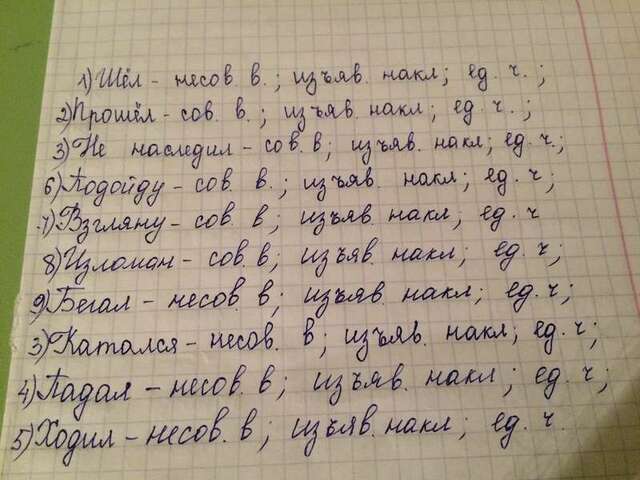 1) Шёл - несов. в.; изъяв. накл; ед. ч.;
2) Прошёл - сов. в.; изъяв. накл; ед. ч.;
3) Не наследил - сов в; изъяв. накл; ед ч;
6) Подойду - сов в.; изъяв. накл; ед. ч;
7) Взгляну - сов. в; изъяв. накл; ед. ч
8) - сов в; изъяв накл; ед. ч;
9) Бегал - несов. в; изъяв накл; ед. ч;
3) Катался - несов. в; изъяв. накл; ед. ч;
4) Падал - несов. в; изъяв. накл; ед. ч;
5) Ходил - несов. в; изъяв. накл; ед. ч.